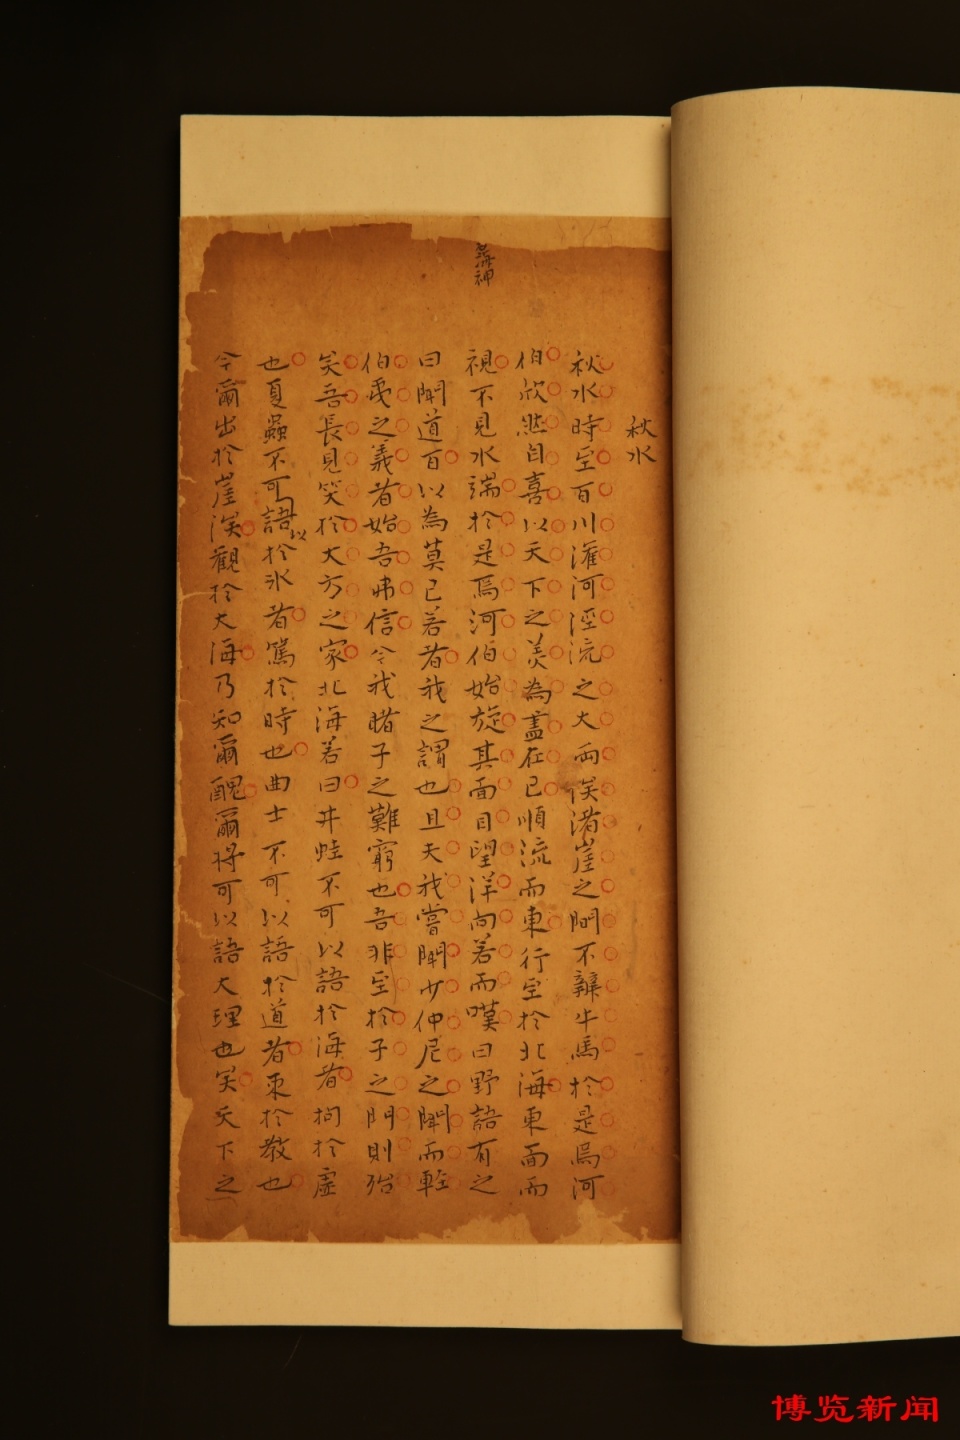 秋水
秋水時至百川灌河涇流之大兩涘渚崖之間不辯牛馬於是焉河
伯欣然自喜以天下之美為盡在己順流而東行至於北海東面而
視不見水端於是焉河伯始旋其面目望洋向若而嘆曰野語有之
曰聞道百以為莫己若者我之謂也且夫我嘗聞少仲尼之聞而輕
伯夷之義者始吾弗信今我睹子之難窮也吾非至於子之門則殆
矣吾長見笑於大方之家北海若曰井蛙不可以語於海者拘於虛
也夏蟲不可以語於氷者篤於時也曲士不可以語於道者束於教也
今爾出於崖涘觀於大海乃知爾醜爾將可以語大理也矣天下之
博览新闻